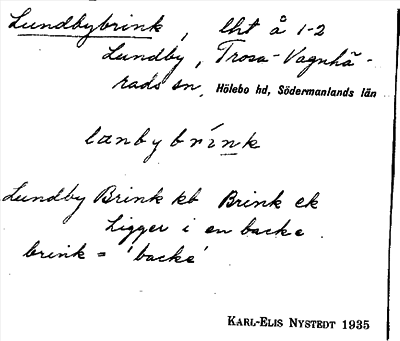 Lundbybrink, lht å 1-2
Lundby, Trosa-Vagnhä-
rads sn, Hölebo hd, Södermanlands län
lanbybrínk
Lundby Brink kb Brink ek
Ligger i en backe.
brink = 'backe'
KARL-ELIS NYSTEDT 1935